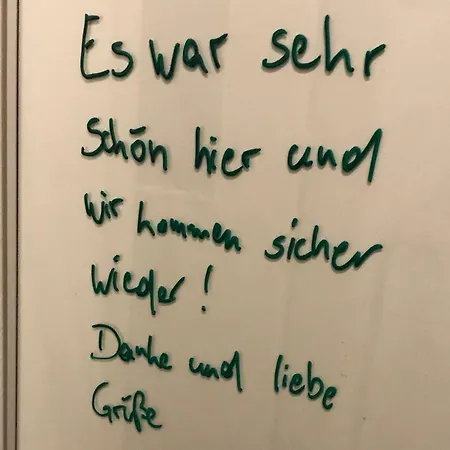 Es war sehr
schön hier und
wir kommen sicher
wieder!
Danke und liebe
Grüße